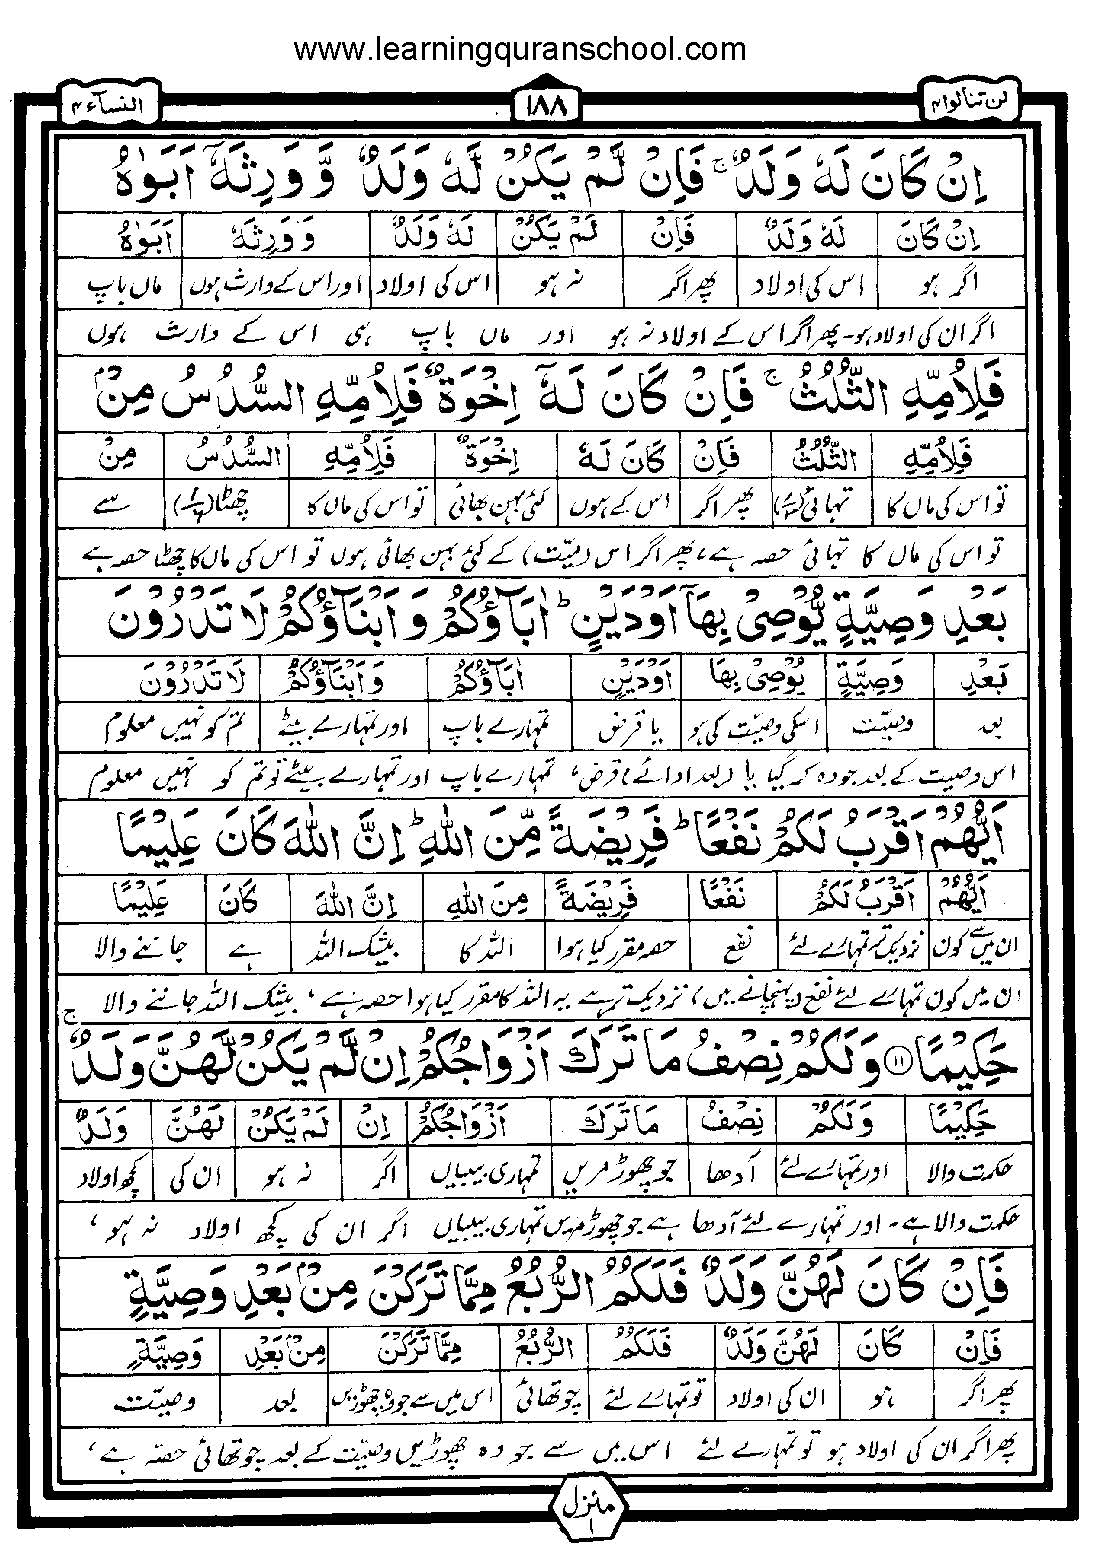 www.learningquranschool.com
لن تنالوا ۴ ۱۸۸ النسآء ۴
اِنْ كَانَ لَهٗ وَلَدٌ ۚ فَاِنْ لَّمْ يَكُنْ لَّهٗ وَلَدٌ وَّ وَرِثَهٗۤ اَبَوٰهُ
اِنْ كَانَ لَهٗ وَلَدٌ فَاِنْ لَمْ يَكُنْ لَهٗ وَلَدٌ وَ وَرِثَهٗ اَبَوٰهُ
اگر ہو اس کی اولاد پھر اگر نہ ہو اس کی اولاد اور اس کے وارث ہوں ماں باپ
اگر ان کی اولاد ہو۔ پھر اگر اس کے اولاد نہ ہو اور ماں باپ ہی اس کے وارث ہوں
فَلِاُمِّهِ الثُّلُثُ ۚ فَاِنْ كَانَ لَهٗۤ اِخْوَةٌ فَلِاُمِّهِ السُّدُسُ مِنْۢ
فَلِاُمِّهِ الثُّلُثُ فَاِنْ كَانَ لَهٗ اِخْوَةٌ فَلِاُمِّهِ السُّدُسُ مِنْ
تو اس کی ماں کا تہائی (۱/۳) پھر اگر اس کے ہوں کئی بہن بھائی تو اس کی ماں کا چھٹا (۱/۶) سے
تو اس کی ماں کا تہائی حصہ ہے، پھر اگر اس (میّت) کے کئی بہن بھائی ہوں تو اس کی ماں کا چھٹا حصہ ہے
بَعْدِ وَصِيَّةٍ يُّوْصِىْ بِهَاۤ اَوْ دَيْنٍ ؕ اٰبَآؤُكُمْ وَ اَبْنَآؤُكُمْ لَا تَدْرُوْنَ
بَعْدِ وَصِيَّةٍ يُوْصِىْ بِهَا اَوْ دَيْنٍ اٰبَآؤُكُمْ وَ اَبْنَآؤُكُمْ لَا تَدْرُوْنَ
بعد وصیّت اسکی وصیّت کی ہو یا قرض تمہارے باپ اور تمہارے بیٹے تم کو نہیں معلوم
اس وصیت کے بعد جو وہ کر گیا یا (بعد ادائے) قرض، تمہارے باپ اور تمہارے بیٹے تو تم کو نہیں معلوم
اَيُّهُمْ اَقْرَبُ لَكُمْ نَفْعًا ؕ فَرِيْضَةً مِّنَ اللّٰهِ ؕ اِنَّ اللّٰهَ كَانَ عَلِيْمًا
اَيُّهُمْ اَقْرَبُ لَكُمْ نَفْعًا فَرِيْضَةً مِنَ اللّٰهِ اِنَّ اللّٰهَ كَانَ عَلِيْمًا
ان میں سے کون نزدیک تر تمہارے لئے نفع حصہ مقرر کیا ہوا اللہ کا بیشک اللہ ہے جاننے والا
ان میں کون تمہارے لئے نفع (پہنچانے میں) نزدیک تر ہے یہ اللہ کا مقرر کیا ہوا حصہ ہے، بیشک اللہ جاننے والا
حَكِيْمًا ۱۱ وَ لَكُمْ نِصْفُ مَا تَرَكَ اَزْوَاجُكُمْ اِنْ لَّمْ يَكُنْ لَّهُنَّ وَلَدٌ ۚ
حَكِيْمًا وَلَكُمْ نِصْفُ مَا تَرَكَ اَزْوَاجُكُمْ اِنْ لَمْ يَكُنْ لَهُنَّ وَلَدٌ
حکمت والا اور تمہارے لئے آدھا جو چھوڑ مریں تمہاری بیبیاں اگر نہ ہو ان کی کچھ اولاد
حکمت والا ہے۔ اور تمہارے لئے آدھا ہے جو چھوڑ مریں تمہاری بیبیاں اگر ان کی کچھ اولاد نہ ہو،
فَاِنْ كَانَ لَهُنَّ وَلَدٌ فَلَكُمُ الرُّبُعُ مِمَّا تَرَكْنَ مِنْۢ بَعْدِ وَصِيَّةٍ
فَاِنْ كَانَ لَهُنَّ وَلَدٌ فَلَكُمُ الرُّبُعُ مِمَّا تَرَكْنَ مِنْۢ بَعْدِ وَصِيَّةٍ
پھر اگر ہو ان کی اولاد تو تمہارے لئے چوتھائی اس میں سے جو وہ چھوڑیں بعد وصیّت
پھر اگر ان کی اولاد ہو تو تمہارے لئے اس میں سے جو وہ چھوڑیں وصیّت کے بعد چوتھائی حصّہ ہے،
منزل ۱